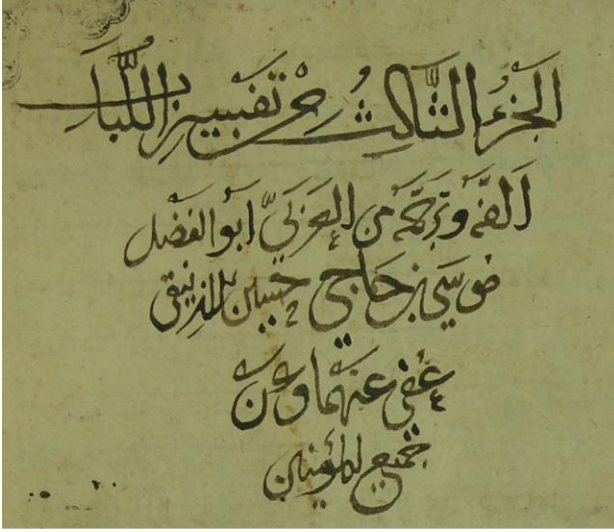 الجزء الثالث من تفسير اللباب
الفه وترجمه من العربي ابو الفضل
موسى بن حاجي حسين الازنيقى
عفى عنهما وعن
جميع المؤمنين